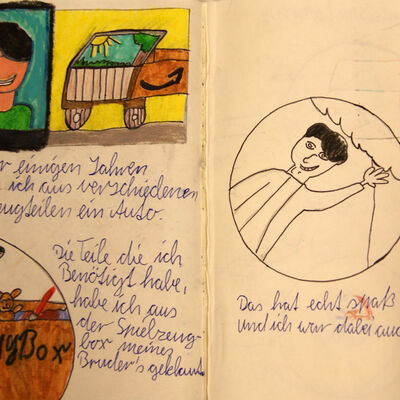 r einigen Jahren
ich aus verschiedenen
eugteilen ein Auto.
Die Teile die ich
Benötigt habe,
habe ich aus
der Spielzeug-
box meines
Bruder's geklaut
yBox
Das hat echt spaß
und ich war dabei auc